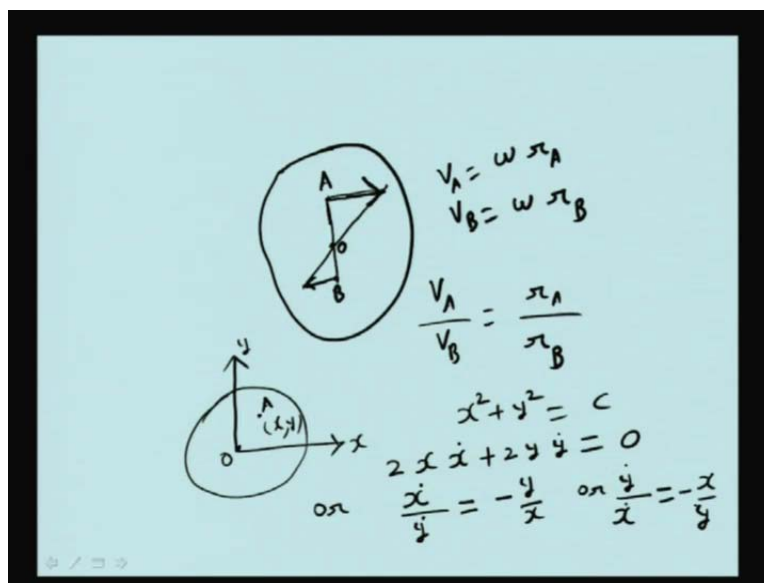 A
O
B
V_A = ω r_A
V_B = ω r_B
V_A / V_B = r_A / r_B
y
A
(x,y)
O
x
x² + y² = C
2 x ẋ + 2 y ẏ = 0
or ẋ / ẏ = - y / x or ẏ / ẋ = - x / y